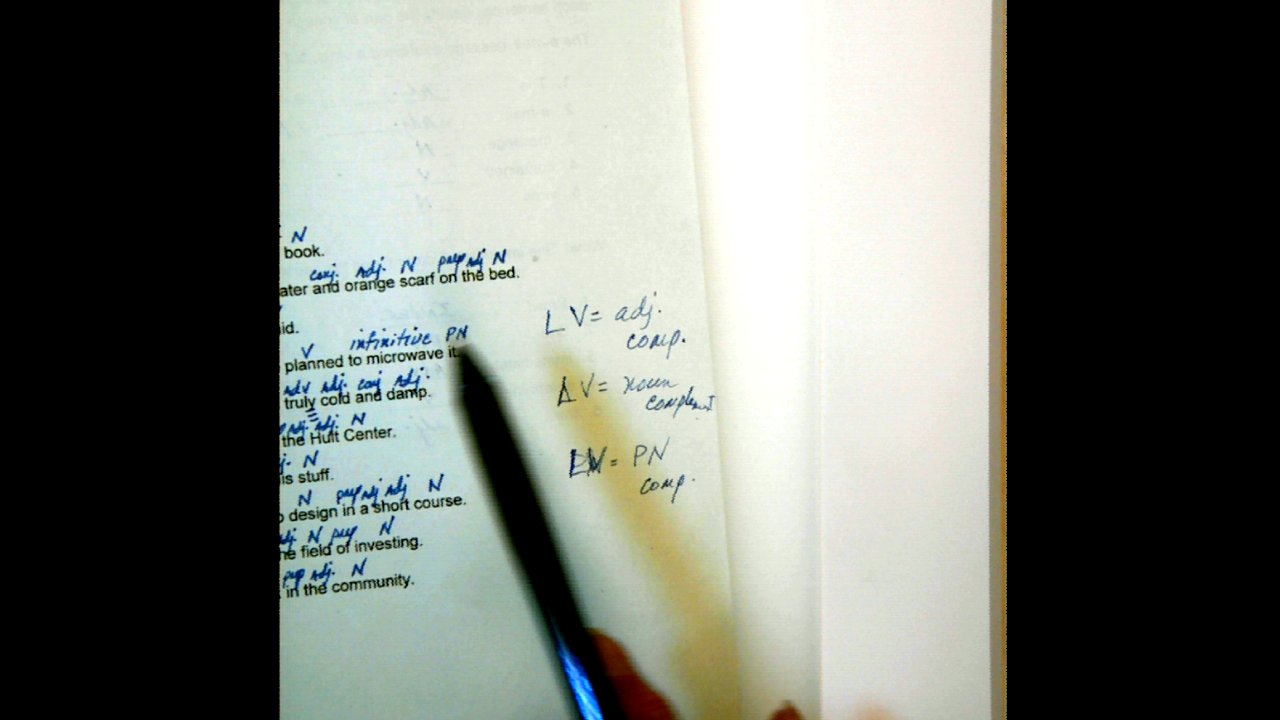 N
book.
conj. Adj. N prep adj N
ater and orange scarf on the bed.
id.
V infinitive PN
planned to microwave it
adv adj. conj Adj.
truly cold and damp.
adj. N
the Hult Center.
N
is stuff.
N prep adj adj N
design in a short course.
N prep N
he field of investing.
prep adj. N
in the community.
LV = adj.
comp.
LV = noun
complement
LV = PN
comp.